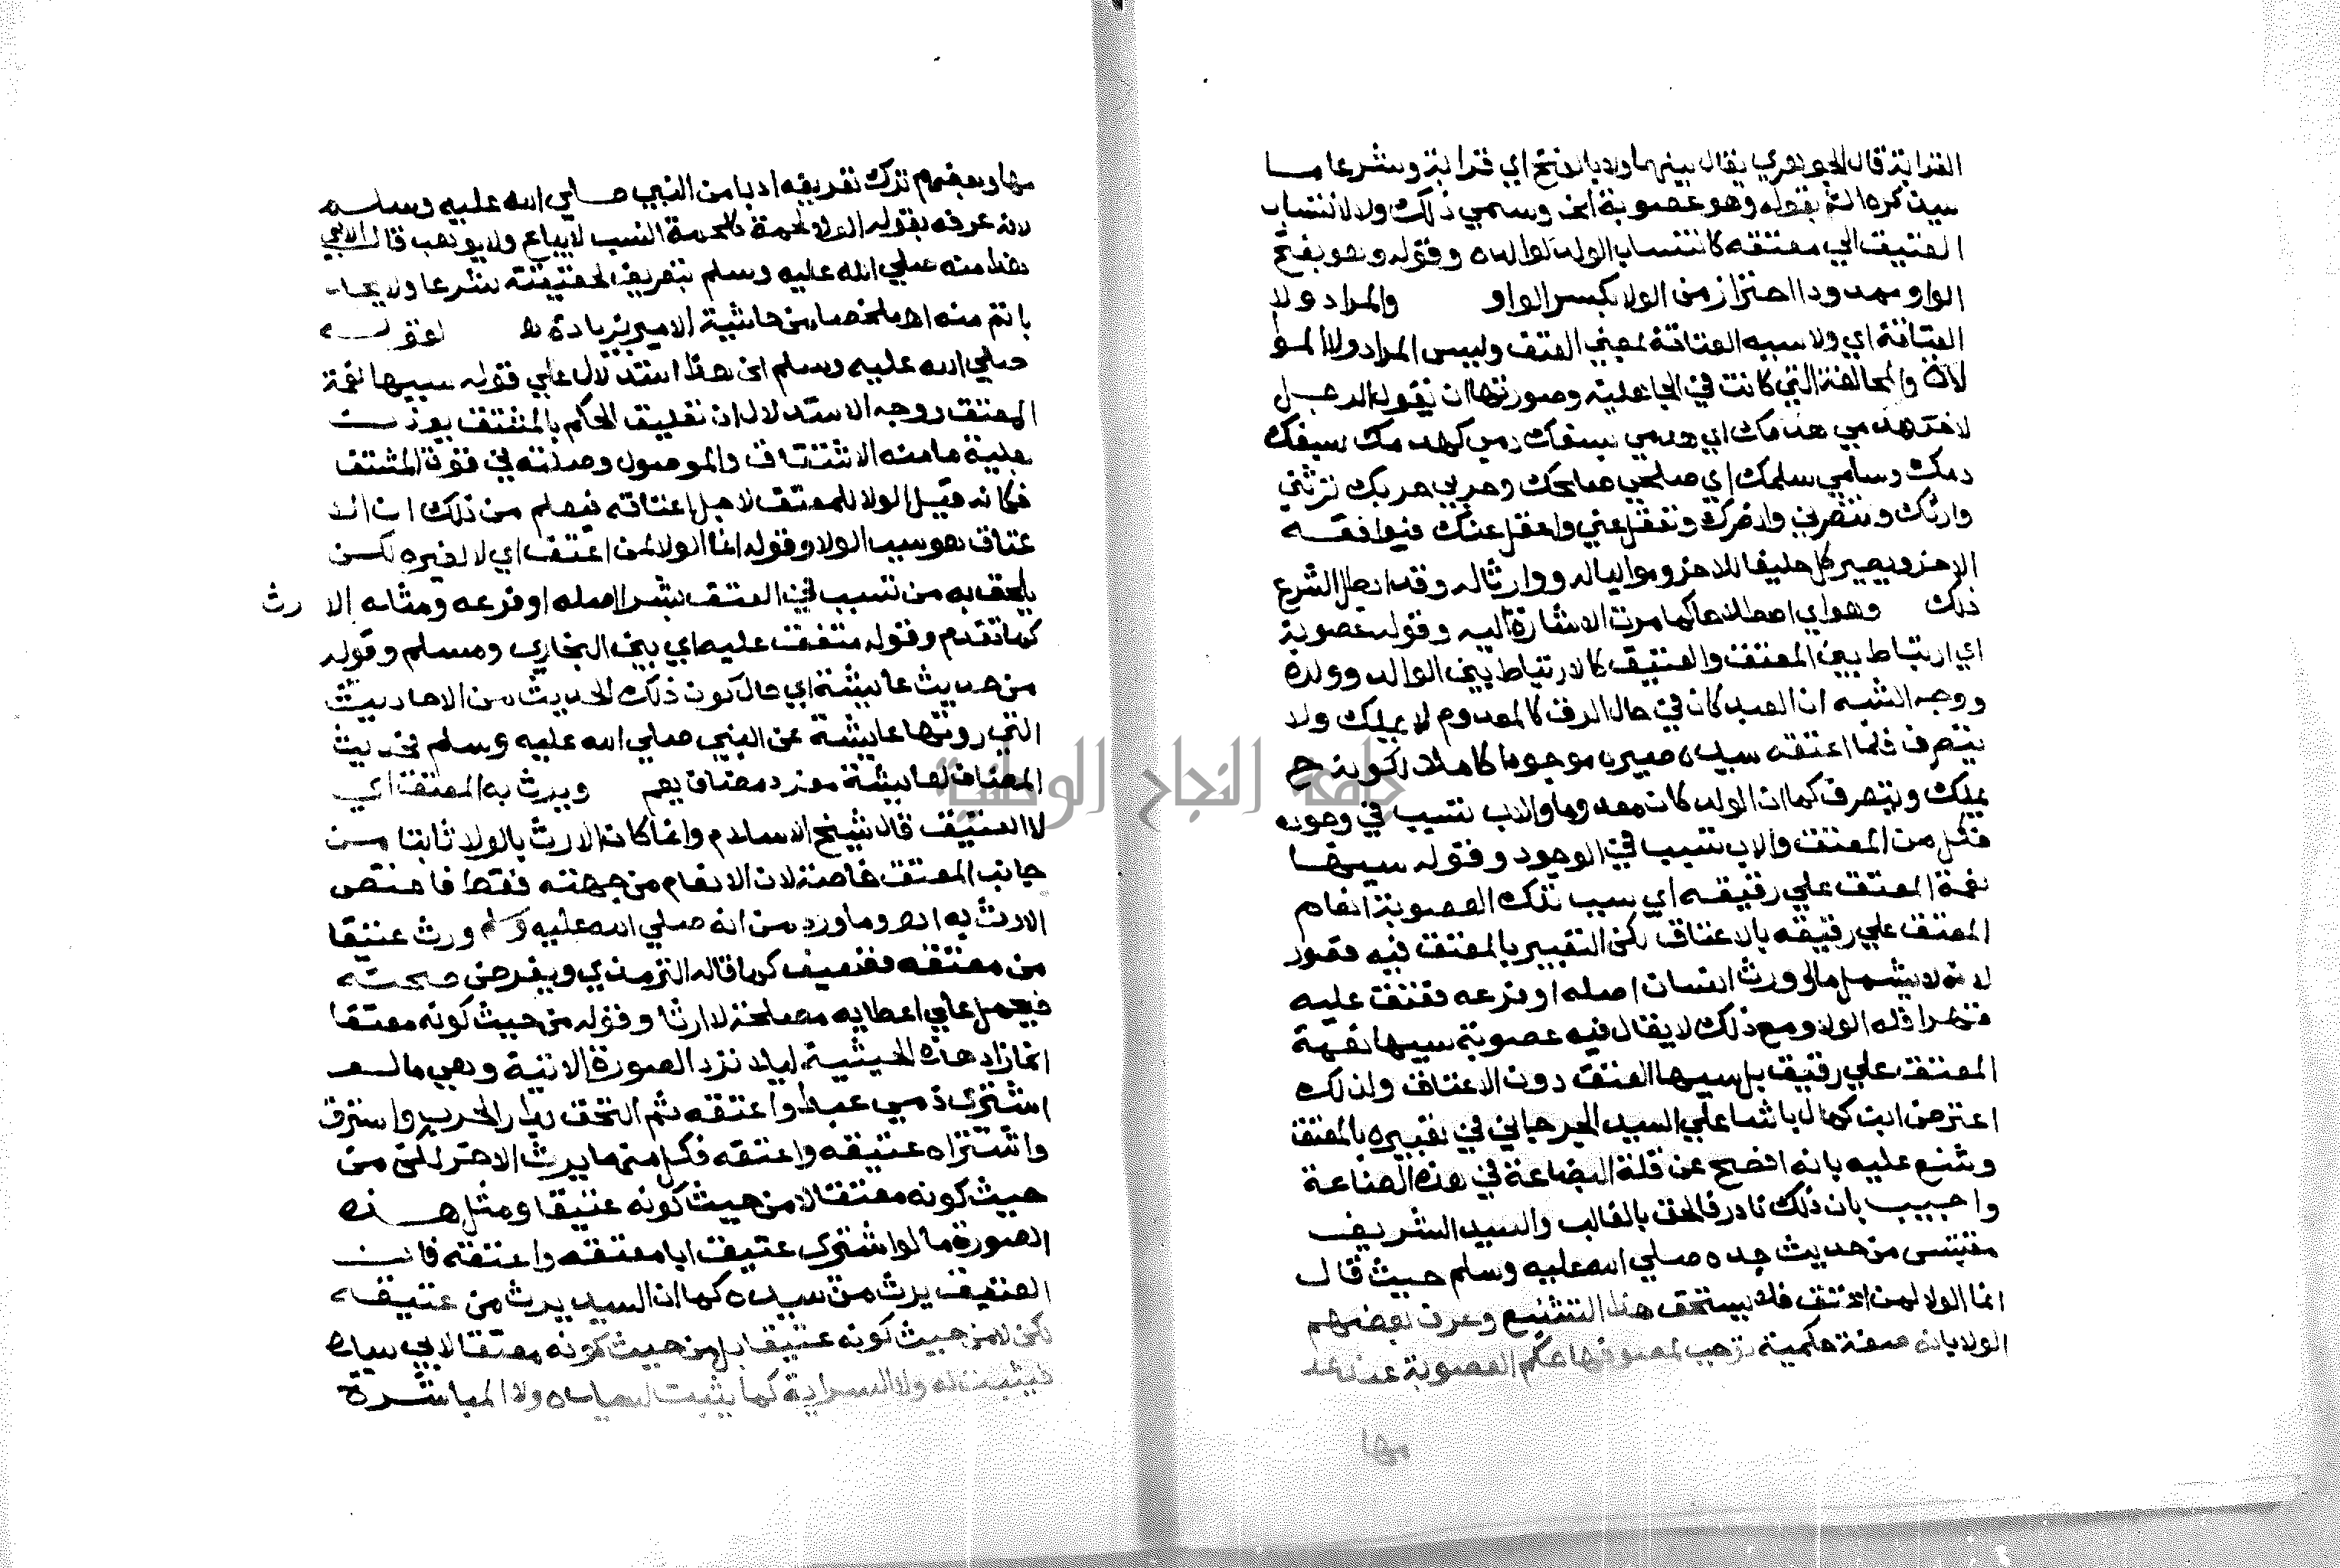 القرابة قال الجوهري يقال بينهما ولا بالفتح اي قرابة وشرعا ما
سيذكره الشم بقوله وهو عصوبة الخ وسمي ذلك ولا لانتساب
العتيق الي معتقه كانتساب الولد لوالده وقوله وهو بفتح
الواو ممدودا احتراز من الولا بكسر الواو والمراد ولا
العتاقة اي ولا سببه العتاقة بمعني العتق وليس المراد ولا الموا
لاة والمحالفة التي كانت في الجاهلية وصورتها ان يقول الرجل
لاخر هدمي هدمك اي هدمي بسفك دمي كهدمك بسفك
دمك وسلمي سلمك اي صلحي صلحك وحربي حربك ترثني
وارثك وتنصرني وانصرك وتعقل عني واعقل عنك فيوافقه
الاخر ويصير كل حليفا للاخر ومواليا له ووارثا له وقد ابطل الشرع
ذلك وهو اي اصطلاحا كما مرت الاشارة اليه وقوله عصوبة
اي ارتباط بين المعتق والعتيق كالارتباط بين الوالد وولده
ووجه الشبه ان العبد كان في حال الرق كالمعدوم لا يملك ولا
يتصرف فلما اعتقه سيده صيره موجودا كاملا لكونه ح
يملك ويتصرف كما ان الولد كان معدوما والاب تسبب في وجوده
فكل من المعتق والاب تسبب في الوجود وقوله سببها
نعمة المعتق علي رقيقه اي سبب تلك العصوبة انعام
المعتق علي رقيقه بالاعتاق لكن التعبير بالمعتق فيه قصور
لانه لا يشمل ما لو ورث انسان اصله او فرعه فعتق عليه
قهرا فله الولا ومع ذلك لا يقال فيه عصوبة سببها نعمة
المعتق علي رقيق بل سببها العتق دون الاعتاق ولذلك
اعترض ابن كمال باشا علي السيد الجرجاني في تعبيره بالمعتق
وشنع عليه بانه افصح عن قلة البضاعة في هذه الصناعة
واجيب بان ذلك نادر فالحق بالغالب والسيد الشريف
مقتبس من حديث جده صلي الله عليه وسلم حيث قال
انما الولا لمن اعتق فلا يستحق هذا التشنيع وعرف بعضهم
الولا بانه صفة حكمية توجب لموصوفها حكم العصوبة عند عد
مها
مها وبعضهم ترك تعريفه ادبا من النبي صلي الله عليه وسلم
لانه عرفه بقوله الولا لحمة كلحمة النسب لا يباع ولا يوهب قال الابي
هذا منه صلي الله عليه وسلم تعريف لحقيقته شرعا ولا يحا
باتم منه اه ملخصا من حاشية الامير بزيادة لقوله
صلي الله عليه وسلم الخ هذا استدلال علي قوله سببها نعمة
المعتق ووجه الاستدلال ان تعليق الحكم بالمشتق يوذن
بعلية ما منه الاشتقاق والموصول وصلته في قوة المشتق
فكانه قيل الولا للمعتق لاجل اعتاقه فيعلم من ذلك ان الا
عتاق هو سبب الولا وقوله انما الولا لمن اعتق اي لا لغيره لكن
يلحق به من تسبب في العتق بشرا اصله او فرعه ومثله الا رث
كما تقدم وقوله متفق عليه اي بين البخاري ومسلم وقوله
من حديث عايشة اي حال كون ذلك الحديث من الاحاديث
التي روتها عايشة عن النبي صلي الله عليه وسلم فحديث
المضاف لعايشة مفرد مضاف يعم ويرث به المعتق اي
لا العتيق قال شيخ الاسلام وانما كان الارث بالولا ثابتا من
جانب المعتق خاصة لان الانعام من جهته فقط فاختص
الارث به اه وما ورد من انه صلي الله عليه وسلم ورث عتيقا
من معتقه فضعيف كما قاله الترمذي وبفرض صحته
فيحمل علي اعطايه مصلحة لا ارثا وقوله من حيث كونه معتقا
انما زاد هذه الحيثية ليلا ترد الصورة الاتية وهي ما لو
اشترى ذمي عبدا واعتقه ثم التحق بدار الحرب واسترق
واشتراه عتيقه واعتقه فكل منهما يرث الاخر لكن من
حيث كونه معتقا لا من حيث كونه عتيقا ومثل هذه
الصورة ما لو اشترى عتيق ابا معتقه واعتقه فان
العتيق يرث من سيده كما ان السيد يرث من عتيقه
لكن لا من حيث كونه عتيقا بل من حيث كونه معتقا لابي سيده
فيثبت له ولا السراية كما يثبت لسيده ولا المباشرة
جامعة النجاح الوطنية